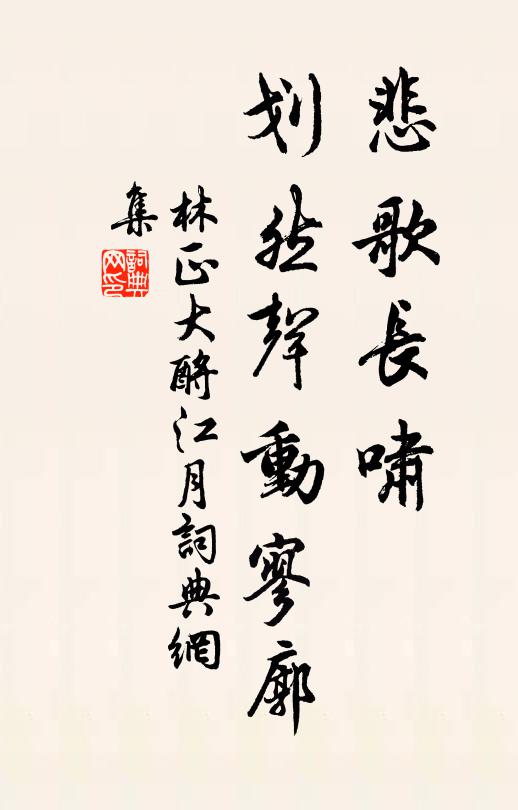 悲歌長嘯
划然聲動寥廓
林正大酹江月詞典網
集
詞典
网印